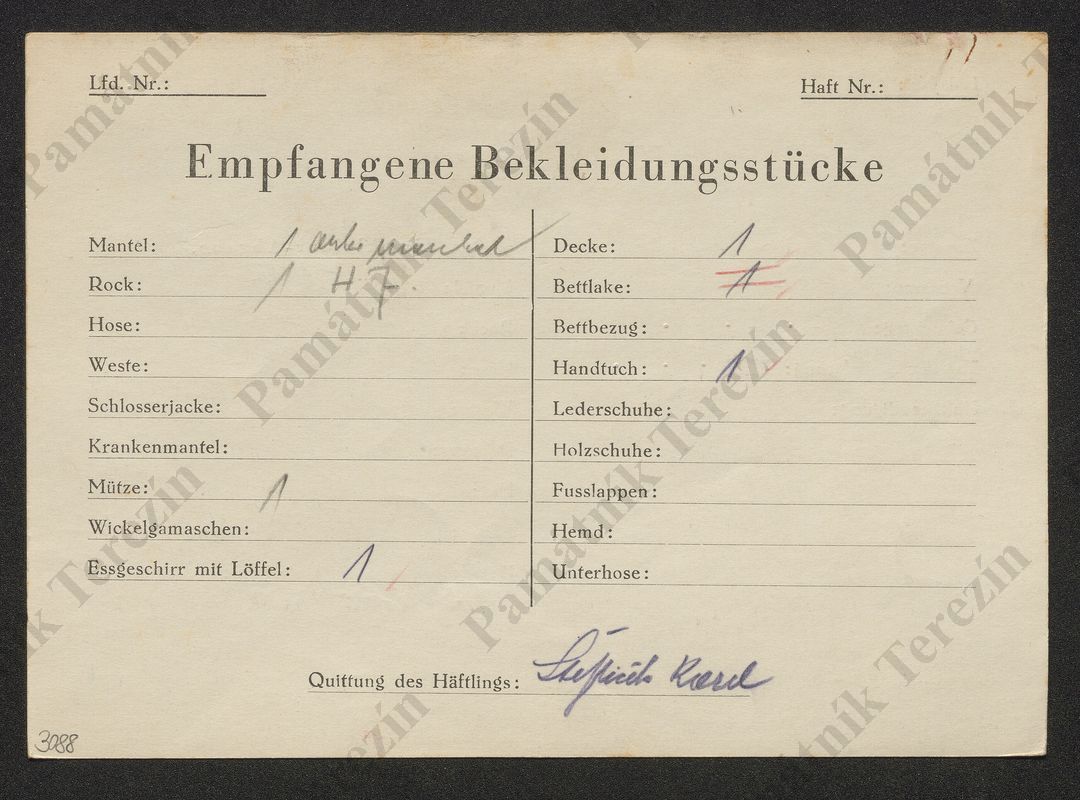 Lfd. Nr.:
Haft Nr.:
Empfangene Bekleidungsstücke
Mantel: 1
Rock: 1 H
Hose:
Weste:
Schlosserjacke:
Krankenmantel:
Mütze: 1
Wickelgamaschen:
Essgeschirr mit Löffel: 1
Decke: 1
Bettlake: 1
Bettbezug:
Handtuch: 1
Lederschuhe:
Holzschuhe:
Fusslappen:
Hemd:
Unterhose:
Quittung des Häftlings: Karel
3088
Památník Terezín